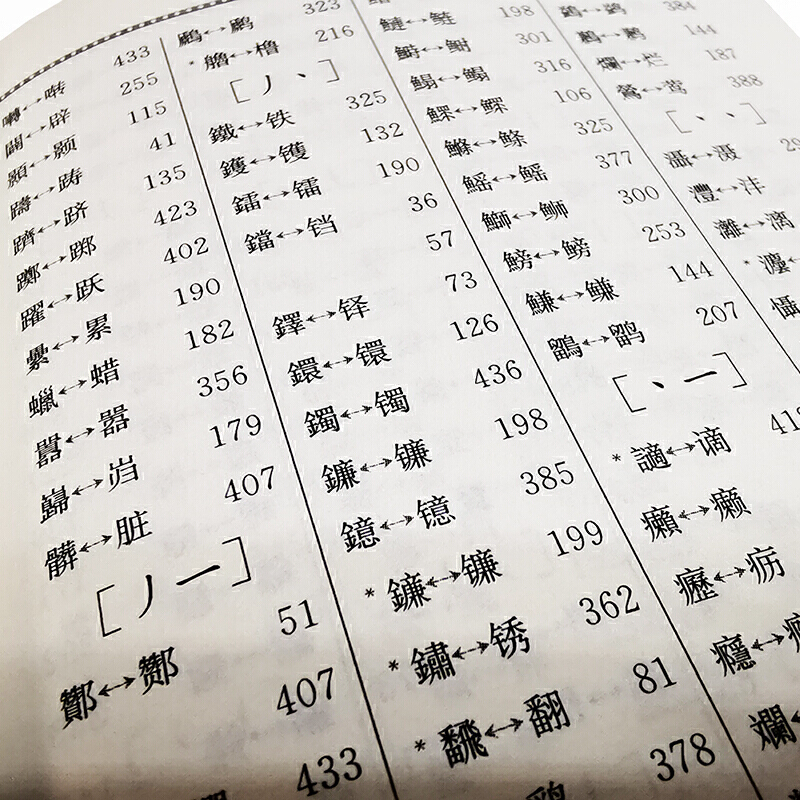 433
囀↔啭 255
闢↔辟 115
顥↔颢 41
躊↔踌 135
躋↔跻 423
躑↔踯 402
躍↔跃 190
纍↔累 182
蠟↔蜡 356
囂↔嚣 179
巋↔岿 407
髒↔脏
[丿一]
51
酇↔酂 407
433
323
↔橹 216
[丿丶]
鐵↔铁 325
鑊↔镬 132
鐳↔镭 190
鐺↔铛 36
57
鐸↔铎 73
鐶↔镮 126
鐲↔镯 436
鐮↔镰 198
鐿↔镱 385
*鐮↔镰 199
*鏽↔锈 362
*飜↔翻 81
378
鰱↔鲢 198
鰣↔鲥 301
鰨↔鳎 316
鰥↔鳏 106
鰷↔鲦 325
鰩↔鳐 377
鰤↔𫚕 300
鰟↔鳑 253
鰜↔鳒 144
鶹↔鹠 207
[丶一]
*謫↔谪 418
癩↔癞
癧↔疬
癮↔瘾
斕↔
384
鶼↔鹣 144
爛↔烂 187
鶯↔莺 388
[丶丶]
灄↔滠 29
灃↔沣
灕↔漓
懾